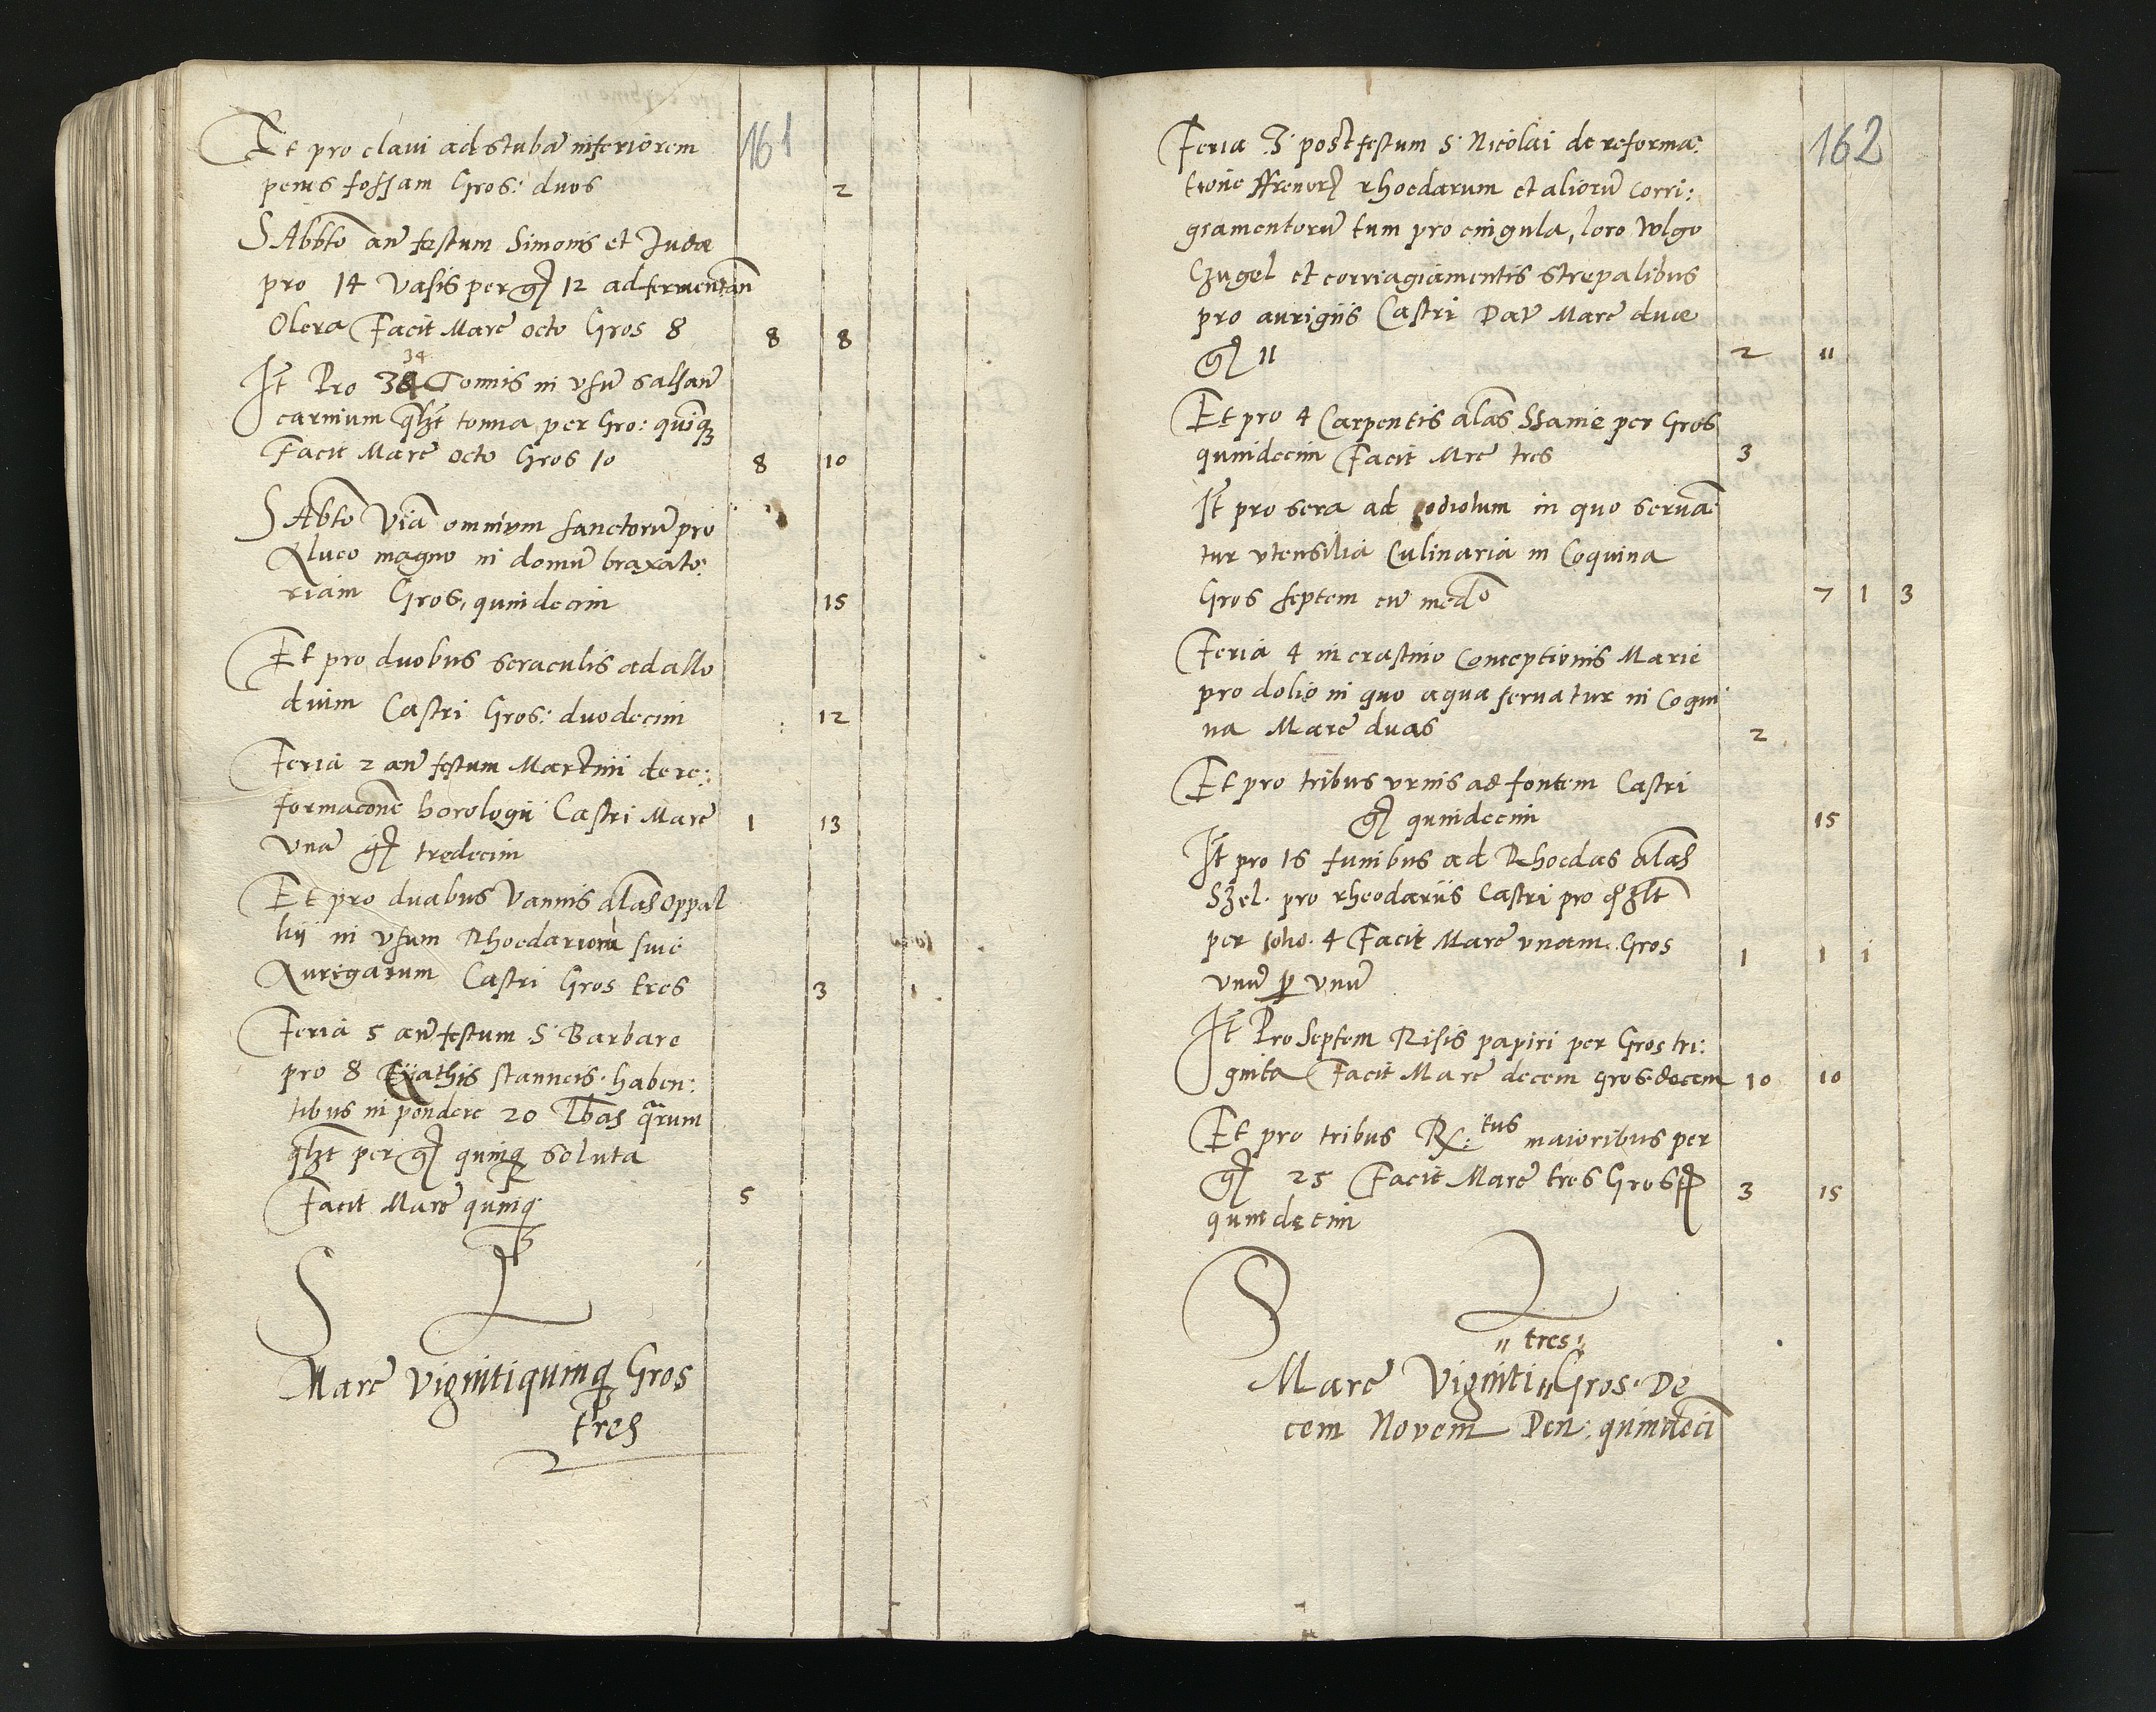 161
Et pro claui ad stubã inferiorem
penes fossam Gros: duos 2
SAbbto añ festum Simonis et Judæ
pro 14 Vasis per gͬ 12 ad fermentañ
Olera Facit Marc̃ octo Gros 8 8 8
34
It Pro 34 Tonnis in vsũ salsañ
carnium qlzt tonna per Gro: quinqꝫ
Facit Marc̃ octo Gros 10 8 10
SAbto Viã omnium sanctorũ pro
Alueo magno in domũ braxato:
riam Gros, quindecim 15
Et pro duobus seraculis ad allo
dium Castri Gros: duodecim 12
Feria 2 añ festum Martini de re:
formacõne horologii Castri Marc̃ 1 13
vnã gͬ tredecim
Et pro duabus Vannis alas oppal
kij in vsum Rhoedariorũ siue
Aurigarum Castri Gros tres 3
Feria 5 añ festum S. Barbare
pro 8 Cyathis stanneis haben:
tibus in pondere 20 lbas quarum
qlzt per gͬ quinqꝫ soluta
Facit Marc̃ quinqꝫ 5
S Lͣ
Marc̃ Vigintiquinqꝫ Gros
tres
162
Feria 3 post festum S. Nicolai de reforma:
tione ffrenorꝝ rhoedarum et aliorũ corri:
giamentorũ tum pro cingula, loro vvlgo
Czugel et corriagiamentis strepalibus
pro aurigiis Castri Dat̃ Marc̃ duæ
gͬ 11 2 11
Et pro 4 Carpentis alas Ssanie per Gros
quindecim Facit Mrc̃ tres 3
It pro sera ad in quo serua
tur vtensilia Culinaria in Coquina
Gros septem cũ medͦ 7 1 3
Feria 4 in crastino Conceptionis Marie
pro dolio in quo aqua seruatur in Coqui
na Marc̃ duas 2
Et pro tribus vrnis ad fontem Castri
gͬ quindecim 15
It pro 16 funibus ad Rhoedas alas
Szel. pro rheodariis Castri pro qlzt
per soho. 4 Facit Marc̃ vnam. Gros 1 1 1
vnũ ꝑ vnũ
It Pro Septem Risis papiri per Gros tri:
ginta Facit Marc̃ decem gros. decem 10 10
Et pro tribus R: tus maioribus per
gͬ 25 Facit Marc̃ tres Gros 3 15
quindecim
S Lͣ
" tres "
Marc̃ Viginti " Gros. De
cem Novem Den: quindeci